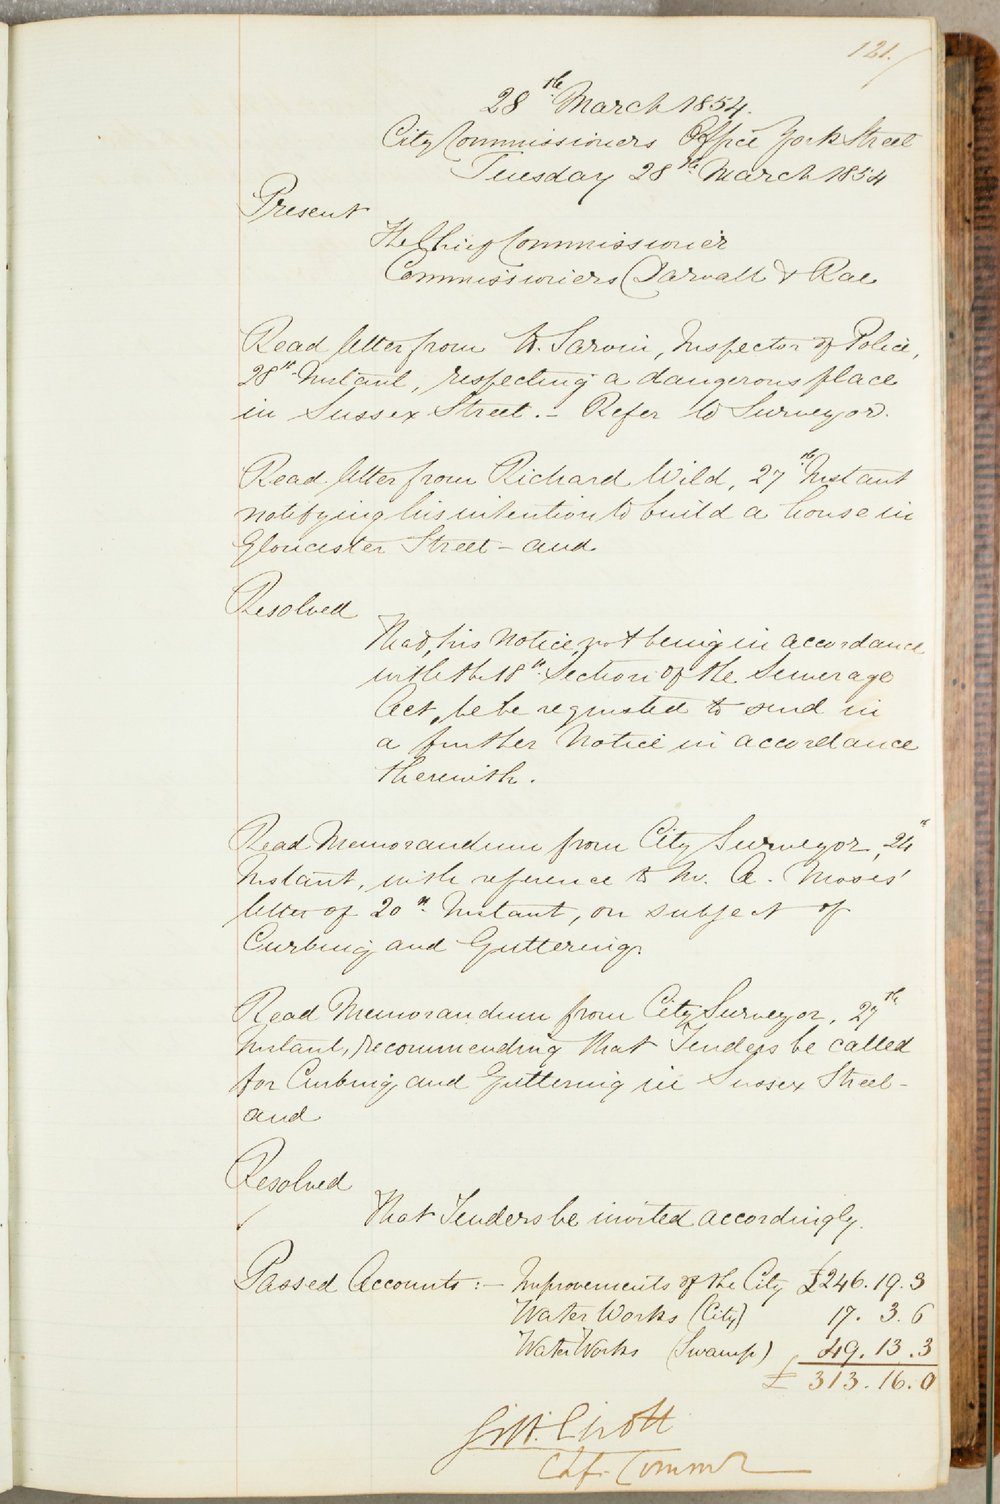 121.
28th March 1854.
City Commissioners Office York Street
Tuesday 28th March 1854
Present
The Chief Commissioner
Commissioners Darvall & Rae
Read letter from Inspector of Police,
28th Instant, respecting a dangerous place
in Sussex Street. - Refer to Surveyor.
Read letter from Richard Wild, 27th Instant
notifying his intention to build a house in
Gloucester Street - and
Resolved
That, his notice not being in accordance
with the 18th Section of the Sewerage
Act, he be requested to send in
a further Notice in accordance
therewith.
Read Memorandum from City Surveyor, 24th
Instant, with reference to Mr. A. Moses'
letter of 20th Instant, on subject of
Curbing and Guttering.
Read Memorandum from City Surveyor, 27th
Instant, recommending that Tenders be called
for Curbing and Guttering in Sussex Street -
and
Resolved
That Tenders be invited accordingly.
Passed Accounts :- Improvements of the City £246.19.3
Water Works (City) 17. 3. 6
Water Works (Swamp) 49.13.3
£ 313.16.0
Chf. Commr